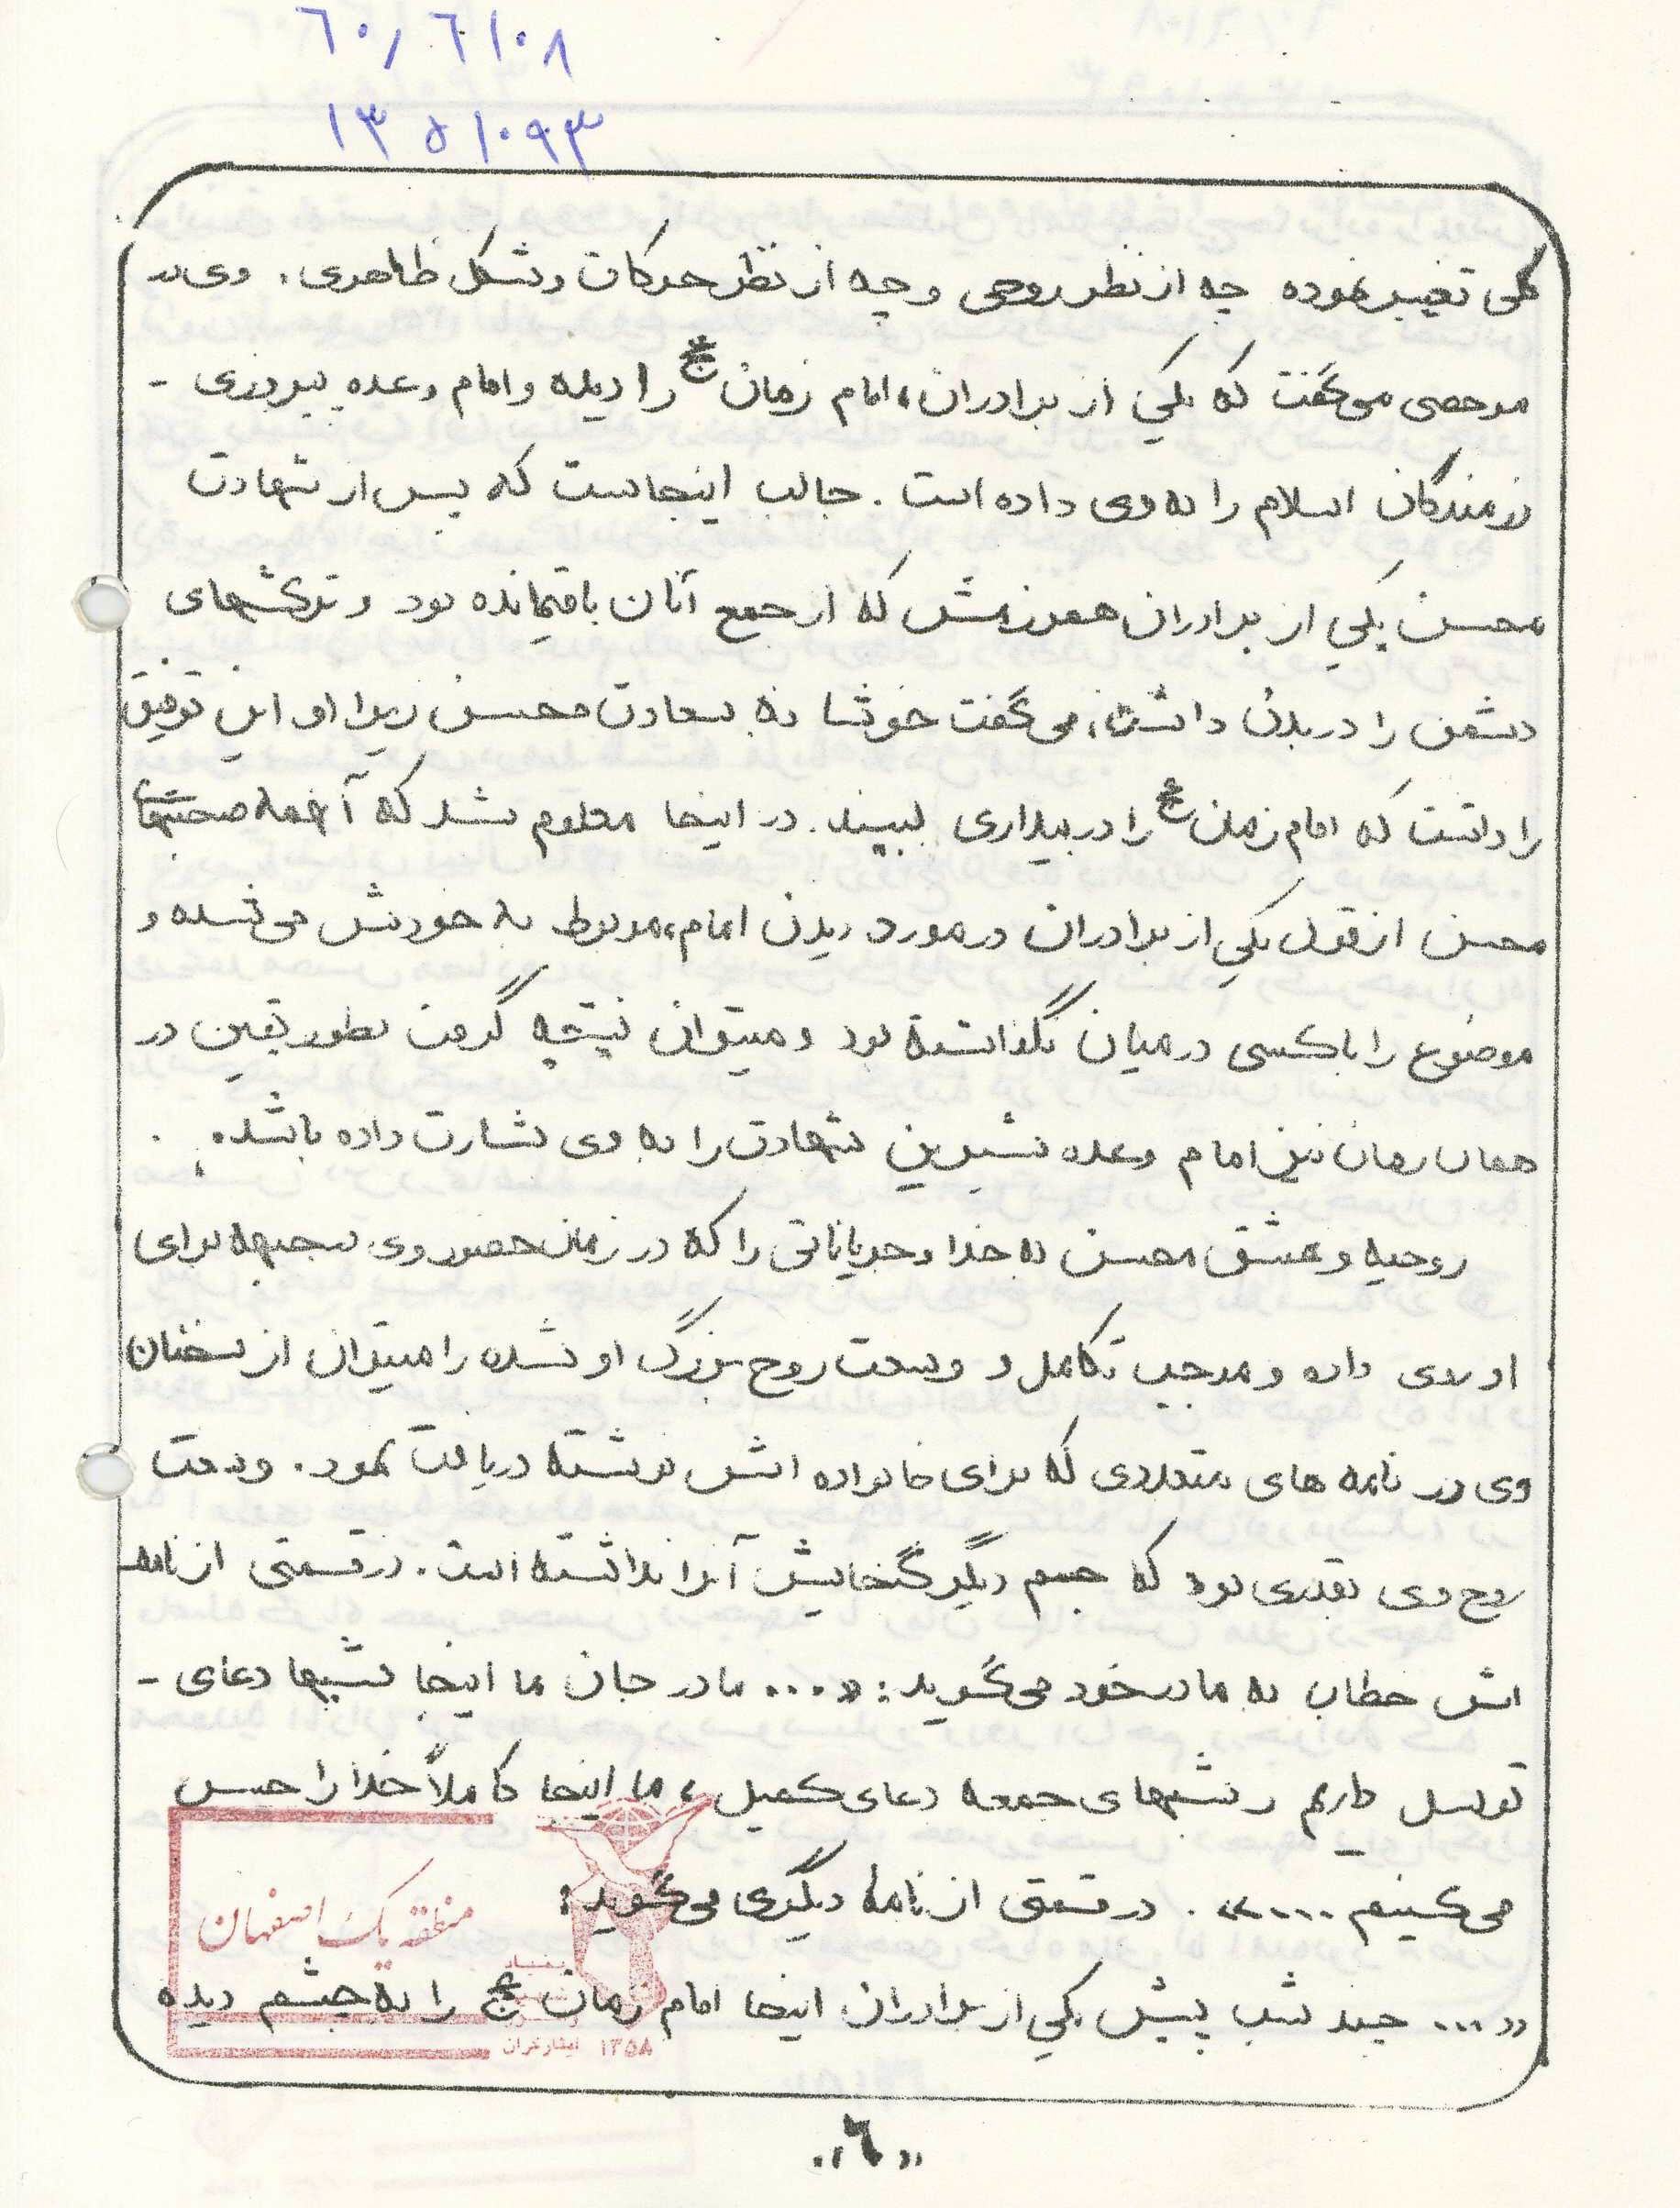 ٦٠/٦١٠٨
١٣٥١٠٩٣
کلی تغییر نموده چه از نظر روحی و چه از نظر حرکات و شکل ظاهری. وی در
مرخصی می‌گفت که یکی از برادران، امام زمان عج را دیده و امام وعده پیروزی -
رزمندگان اسلام را به وی داده است. جالب اینجاست که پس از شهادت
محسن یکی از برادران همرزمش که از جمع آنان باقیمانده بود و ترکشهای
دشمن را در بدن داشت، می‌گفت خوشا به سعادت محسن زیرا او این توفیق
را داشت که امام زمان عج را در بیداری ببیند. در اینجا معلوم شد که آنهمه صحبتهای
محسن از قول یکی از برادران در مورد دیدن امام، مربوط به خودش می‌شده و
موضوع را با کسی در میان نگذاشته بود و میتوان نتیجه گرفت بطور یقین در
همان زمان نیز امام وعده شیرین شهادت را به وی بشارت داده باشد.
روحیه و عشق محسن به خدا و جریاناتی را که در زمان حضور وی بجبهه برای
او روی داده و موجب تکامل و وسعت روح بزرگ او شده را میتوان از سخنان
وی در نامه های متعددی که برای خانواده اش نوشته دریافت نمود. وسعت
روح وی بقدری بود که جسم دیگر گنجایش آنرا نداشته است. در قسمتی از نامه
اش خطاب به مادر خود می‌گوید: «... مادر جان ما اینجا شبها دعای -
توسل داریم و شبهای جمعه دعای کمیل، ما اینجا کاملاً خدا را حس
می‌کنیم ....». در قسمتی از نامه دیگری می‌گوید:
«... چند شب پیش یکی از برادران اینجا امام زمان عج را به چشم دیده
منطقه یک اصفهان
بنیاد
ایثارگران ١٣٥٨
«٦»